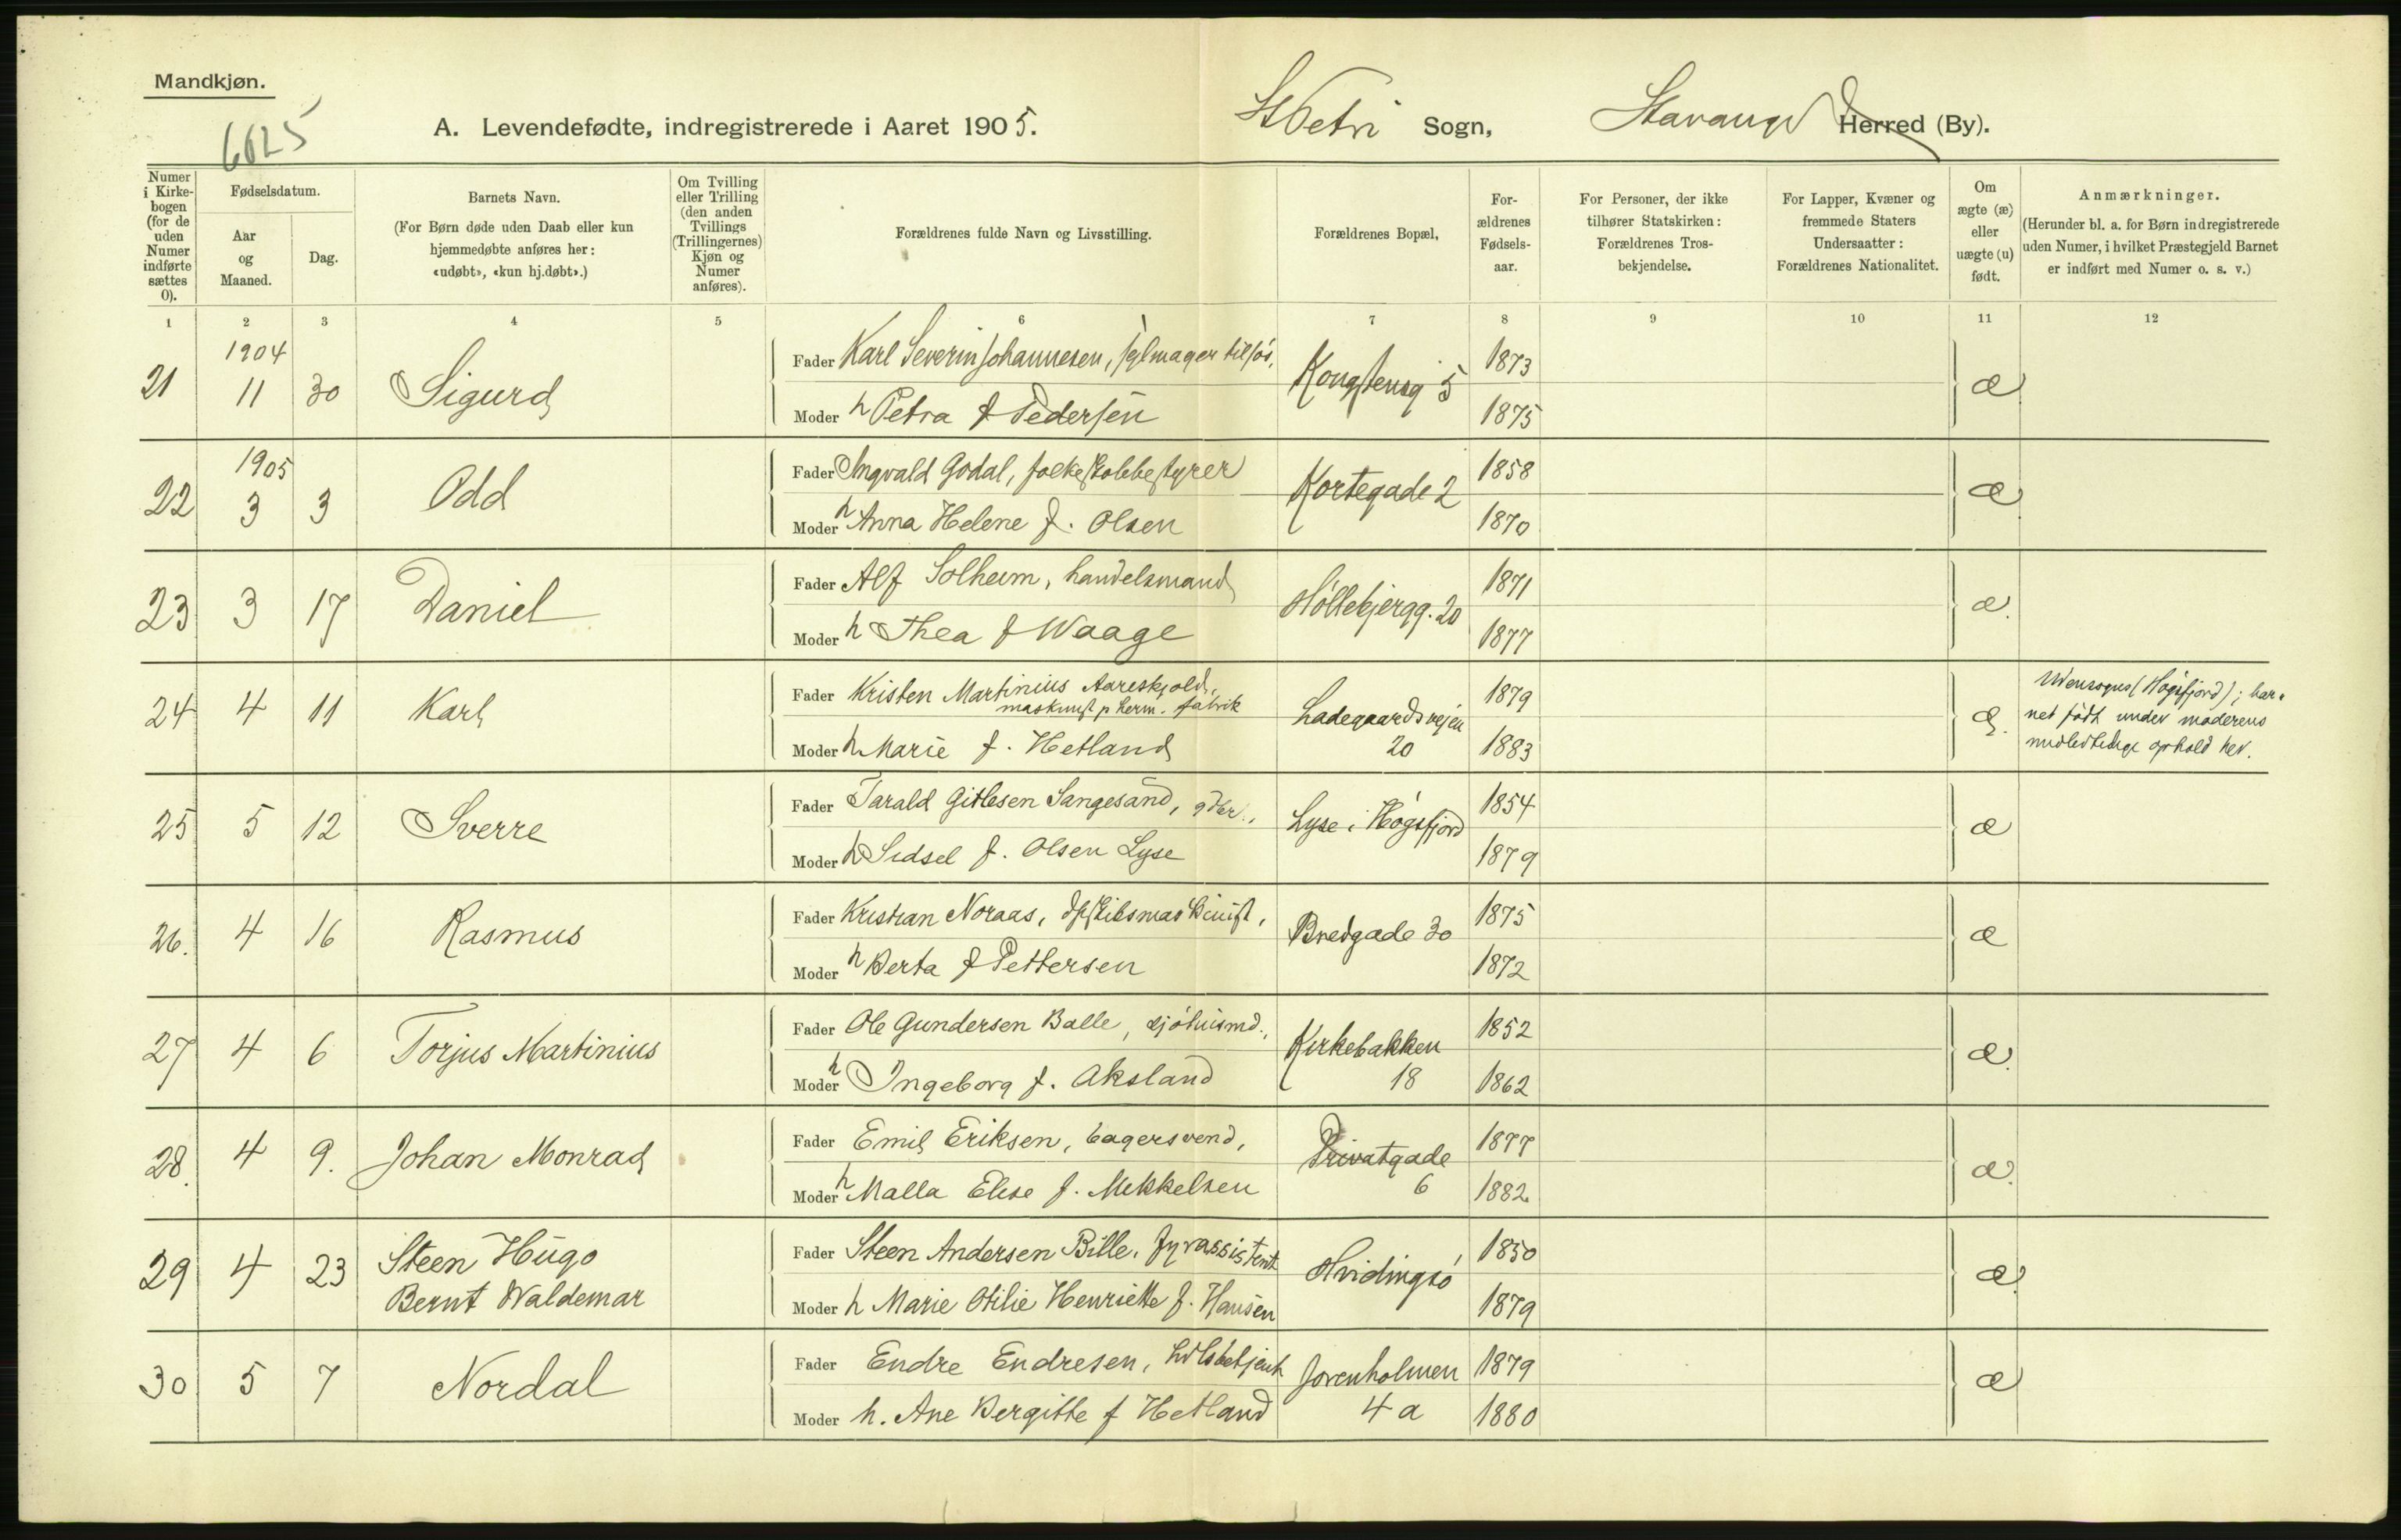 Mandkjøn.
6625
A. Levendefødte, indregistrerede i Aaret 1905. St Petri Sogn, Stavanger Herred (By).
Numer i Kirke-bogen (for de uden Numer indførte sættes 0).
Fødselsdatum.
Aar og Maaned.
Dag.
Barnets Navn.
(For Børn døde uden Daab eller kun hjemmedøbte anføres her: «udøbt», «kun hj.døbt».)
Om Tvilling eller Trilling (den anden Tvillings (Trillingernes) Kjøn og Numer anføres).
Forældrenes fulde Navn og Livsstilling.
Forældrenes Bopæl,
For-ældrenes Fødsels-aar.
For Personer, der ikke tilhører Statskirken: Forældrenes Tros-bekjendelse.
For Lapper, Kvæner og fremmede Staters Undersaatter: Forældrenes Nationalitet.
Om ægte (æ) eller uægte (u) født.
Anmærkninger.
(Herunder bl. a. for Børn indregistrerede uden Numer, i hvilket Præstegjeld Barnet er indført med Numer o. s. v.)
1 2 3 4 5 6 7 8 9 10 11 12
1904
21 11 30 Sigurd Fader Karl Severin Johannesen, sejlmager tilsøs, Kongstensg 5 1873 æ
Moder h Petra f Pedersen 1875
1905
22 3 3 Odd Fader Ingvald Godal, folkeskolebestyrer Kortegade 2 1858 æ
Moder h Anna Helene f. Olsen 1870
23 3 17 Daniel Fader Alf Solheim, handelsmand Møllebjergg. 20 1871 æ.
Moder h Thea f Waage 1877
24 4 11 Karl Fader Kristen Martinius Aareskjold, maskinist p herm. fabrik Ladegaardsvejen 20 1879 æ.
Moder h Marie f. Hetland 1883
Udensogns (Høgsfjord); bar-
net født under moderens
midlertidige ophold her.
25 5 12 Sverre Fader Tarald Gitlesen Sangesand, gdbr., Lyse i Høgsfjord 1854 æ
Moder h Sidsel f. Olsen Lyse 1879
26. 4 16 Rasmus Fader Kristian Noraas, dpskibsmaskinist, Bredgade 30 1875 æ
Moder h Berta f Pettersen 1872
27 4 6 Torjus Martinius Fader Ole Gundersen Balle, sjøhusmd., Kirkebakken 18 1852 æ.
Moder h Ingeborg f. Aksland 1862
28. 4 9. Johan Monrad Fader Emil Eriksen, bagersvend, Privatgade 6 1877 æ.
Moder h Malla Elise f. Mikkelsen 1882.
29 4 23 Steen Hugo Bernt Waldemar Fader Steen Andersen Bille, fyrassistent Hvidingsø 1850 æ.
Moder h Marie Otilie Henriette f. Hansen 1879
30 5 7 Nordal Fader Endre Endresen, hdlsbetjent Jorenholmen 4 a 1879 æ
Moder h. Ane Bergitte f Hetland 1880